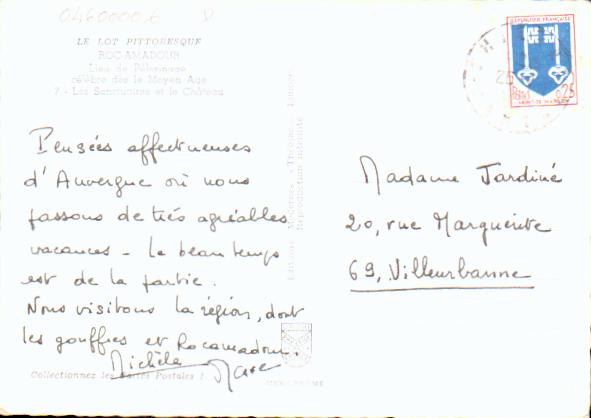 04600006 D
LE LOT PITTORESQUE
ROC-AMADOUR
Lieu de Pèlerinage
célèbre dès le Moyen Age
7 - Les Sanctuaires et le Château
REPUBLIQUE FRANÇAISE
0,25
Pensées affectueuses
d'Auvergne où nous
passons de très agréables
vacances - Le beau temps
est de la partie.
Nous visitons la région, dont
les gouffres et Rocamadour.
Michèle Marc
Madame Jardiné
20, rue Marguerite
69, Villeurbanne
Editions Modernes « Théojac »
Reproduction interdite
Collectionnez les Cartes Postales !
MEXICHROME